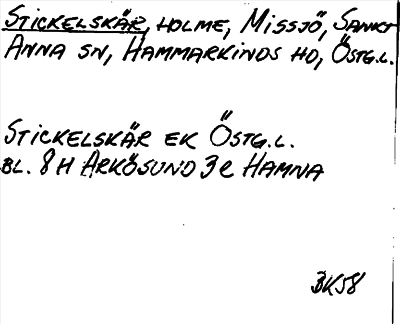 STICKELSKÄR, HOLME, MISSJÖ, SANKT
ANNA SN, HAMMARKINDS HD, ÖSTG.L.
STICKELSKÄR EK ÖSTG.L.
BL. 8H ARKÖSUND 3e HAMNA
BK58